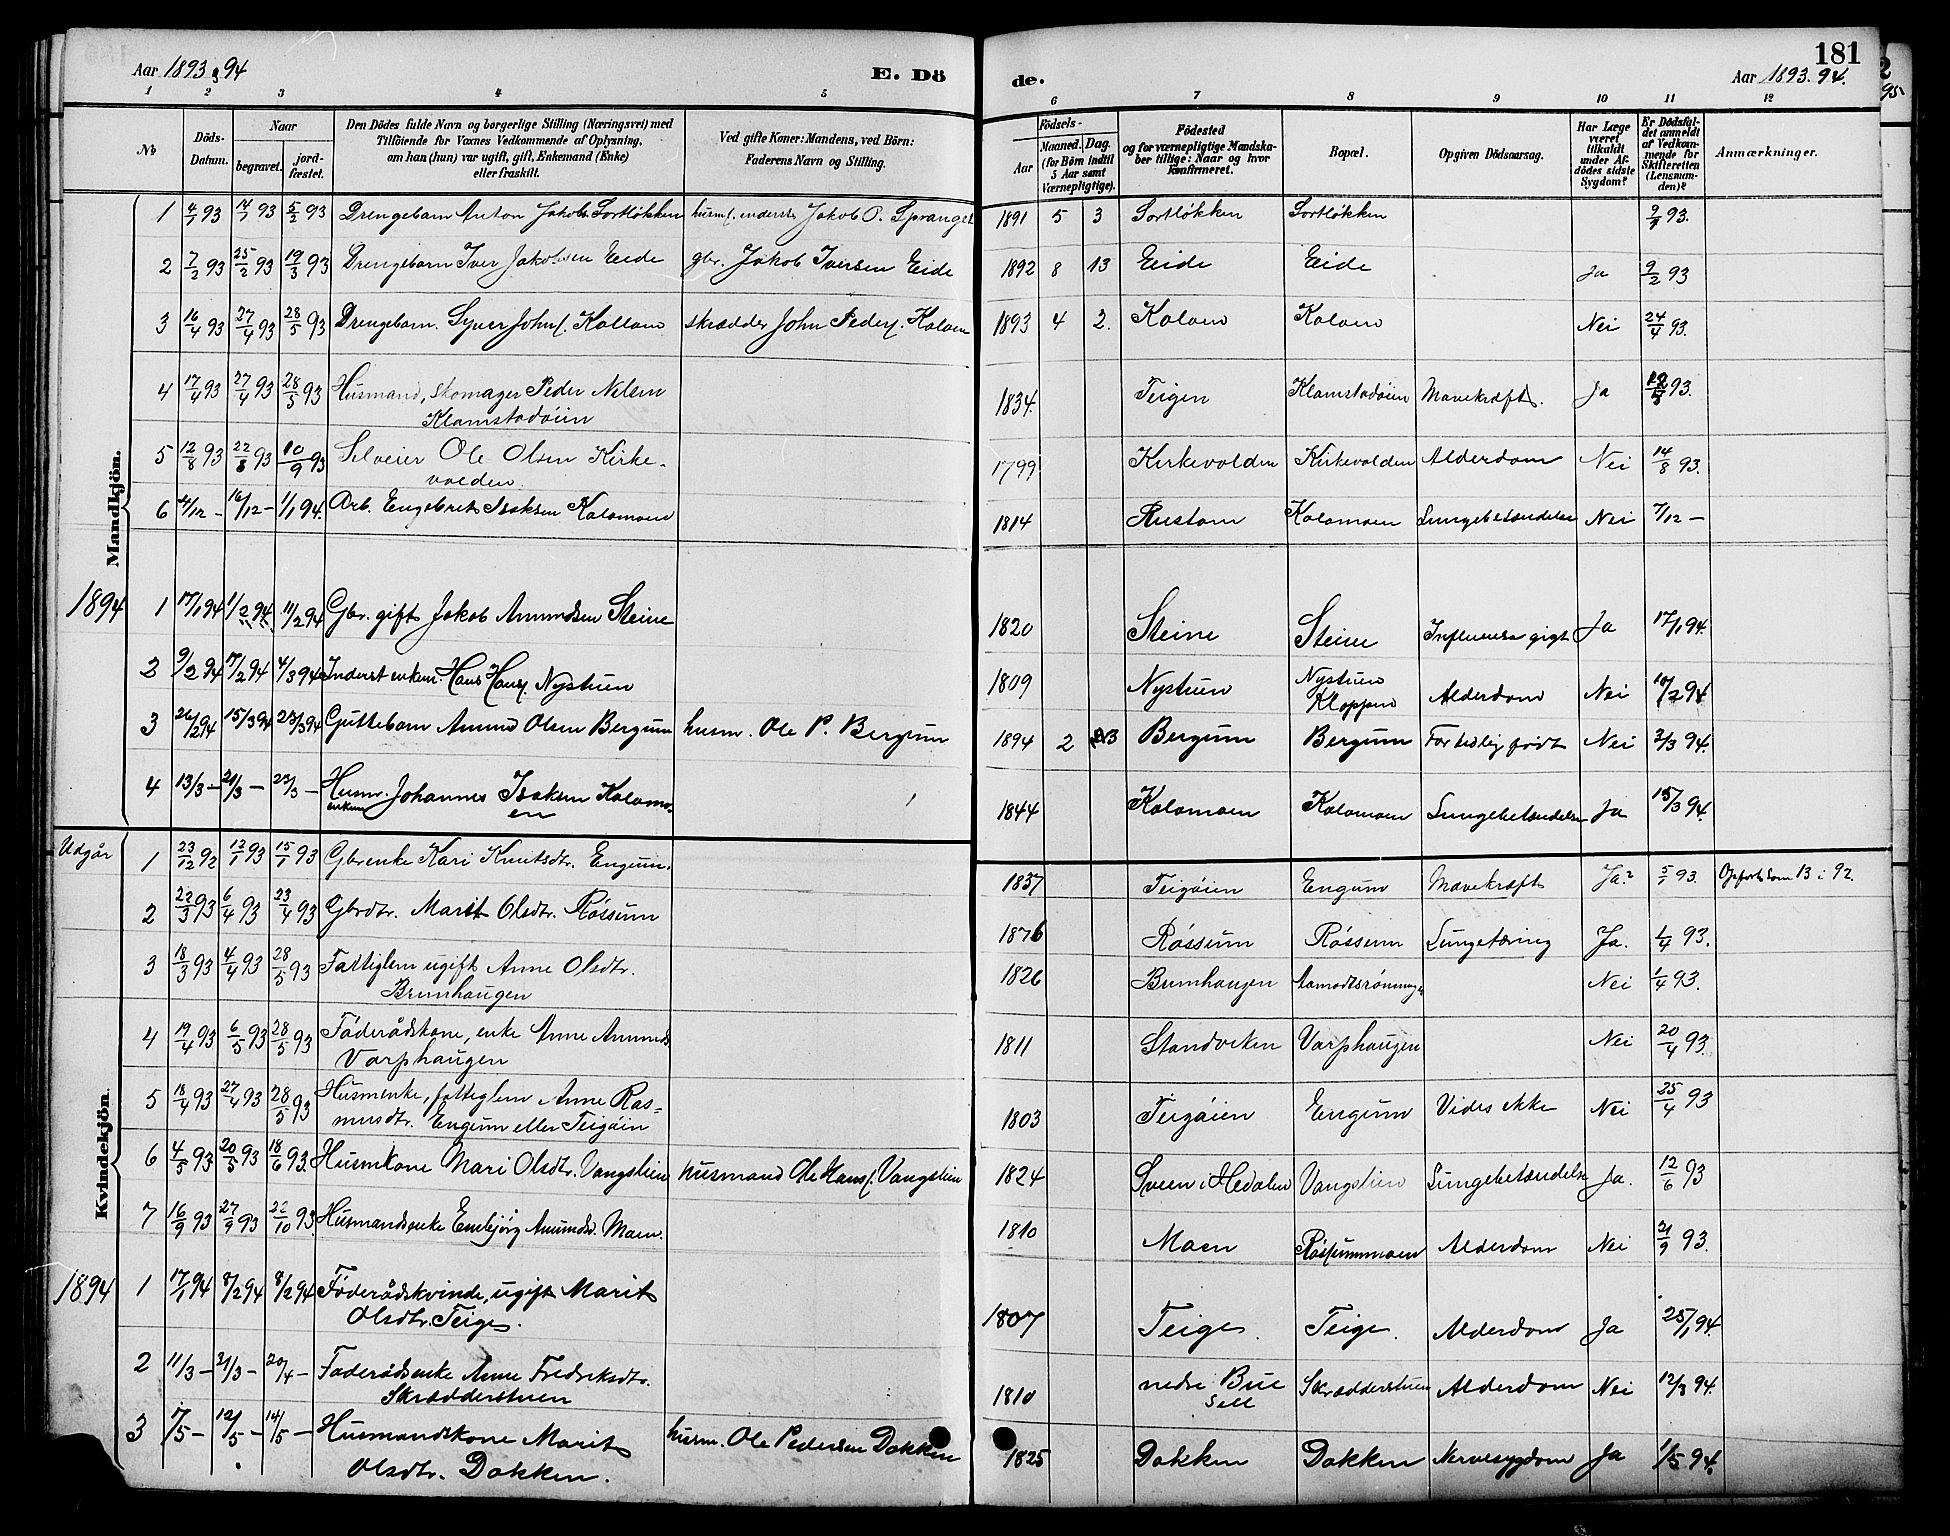 181
Aar 1893 & 94 E. Dö de. Aar 1893. 94.
1 2 3 4 5 6 7 8 9 10 11 12
№ Döds-Datum. Naar begravet. jord-fæstet. Den Dödes fulde Navn og borgerlige Stilling (Næringsvei) med Tilföiende for Voxnes Vedkommende af Oplysning, om han (hun) var ugift, gift, Enkemand (Enke) eller fraskilt. Ved gifte Koner: Mandens, ved Börn: Faderens Navn og Stilling. Födsels- Aar Maaned. Dag. (for Börn indtil 5 Aar samt Værnepligtige). Födested og for værnepligtige Mandskaber tillige: Naar og hvor konfirmeret. Bopæl. Opgiven Dödsaarsag. Har Læge været tilkaldt under Afdödes sidste Sygdom? Er Dödsfaldet anmeldt af Vedkommende for Skifteretten (Lensmanden)? Anmærkninger.
Mandkjön.
1 4/1 93 14/1 93 5/2 93 Drengebarn Anton Jakobs. Sortløkken husm. inderst Jakob O. Spranget 1891 5 3 Sortløkken Sortløkken 9/1 93.
2 7/2 93 25/2 93 19/3 93 Drengebarn Iver Jakobsen Eide gbr. Jakob Iversen Eide 1892 8 13 Eide Eide Ja 9/2 93
3 16/4 93 27/4 93 28/5 93 Drengebarn. Syver Johns. skrædder John Peders. Koloen 1893 4 2. Koloen Koloen Nei 24/4 93.
4 17/4 93 27/4 93 28/5 93 Husmand, skomager Peder Nilsen 1834. Teigen Klomstadøien Mavekræft. Ja 93.
Klomstadøien
5 12/8 93 22/8 93 10/9 93 Selveier Ole Olsen Kirke- 1799 Kirkevolden Kirkevolden Alderdom Nei 14/8 93.
volden.
6 4/12 - 16/12 - 1/1 94. Arb. Engebret Isaksen Kolomoen 1814 Rustom Kolomoen Lungebetændelse Nei 7/12 -
1894 1 17/1 94 1/2 94 11/2 94 Gbr. gift Jakob Amundsen Steine 1820 Steine Steine Influensa gigt Ja 17/1 94.
2 9/2 94 17/2 94 4/3 94 Inderst enkem. Hans Hans. Nystuen 1809 Nystuen Nystuen Kloppen Alderdom Nei 10/2 94
3 26/2 94 15/3 94 23/3 94 Guttebarn Amund Olsen Bergum husm. Ole P. Bergum 1894 2 23 Bergum Bergum For tidlig født Nei 3/3 94.
4 13/3 - 21/3 - 23/3 - Husm. enkem Johannes Isaksen Kolomo- 1844 Kolomoen Kolomoen Lungebetændelse Ja 15/3 94.
en
Kvindekjön.
Udgår 1 23/12 92 12/1 93 15/1 93 Gbrenke Kari Knutsdtr. Engum. 1837 Teigøien Engum Mavekræft Ja? 5/1 93. Opført som 13 i 92.
2 22/3 93 6/4 93 23/4 93 Gbrdtr. Marit Olsdtr. Røssum 1876 Røssum Røssum Lungetæring Ja. 1/4 93.
3 18/3 93 4/4 93 28/5 93 Fattiglem ugift Anne Olsdtr. 1826 Brunhaugen Nei 1/4 93.
Brunhaugen
4 19/4 93 6/5 93 28/5 93 Føderådskone, enke Anne Amunds 1811 Standviken Varphaugen Nei 20/4 93.
Varphaugen
5 18/4 93 27/4 93 28/5 93 Husmenke, fattiglem Anne Ras- 1803 Teigøien Engum Vides ikke Nei 25/4 93
musdtr. Engum eller Teigøien
6 4/5 93 20/5 93 18/6 93. Husmkone Mari Olsdtr. Vangslien husmand Ole Hans. Vangslien 1824 Sveen i Hedalen Vangslien Lungebetændelse Ja. 12/6 93
7 16/9 93 27/9 93 22/10 93. Husmandsenke Embjørg Amundsd. Moen. 1810 Moen Røssummoen Alderdom Nei 21/9 93.
1894 1 17/1 94 8/2 94 8/2 94 Føderådskvinde, ugift Marit 1807 Teige. Teige. Alderdom Ja 25/1 94.
Olsdtr. Teige.
2 11/3 - 21/3 - 20/4 - Føderådsenke Anne Fredriksdtr. 1810 nedre Bue Sell Skrædderstuen Alderdom Nei 12/3 94.
Skrædderstuen
3 1/5 - 12/5 - 14/5 - Husmandskone Marit husm. Ole Pedersen Dokken 1825 Dokken Dokken Nervesygdom Ja 1/5 94.
Olsdtr. Dokken.